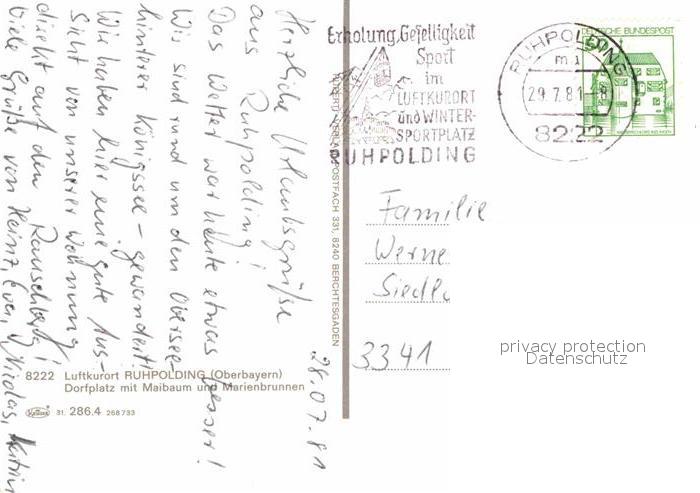 Herzliche Urlaubsgrüße
aus Ruhpolding!
Das Wetter war heute etwas besser!
Wir sind rund um den Obersee -
hinterer Königssee - gewandert!
Wir haben hier eine gute Aus-
sicht von unserer Wohnung
direkt auf den Rauschberg!
Viele Grüße von Heinz, Eva, Nicolas, Katrin
28.07.81
Erholung, Geselligkeit
Sport
im
LUFTKURORT
und WINTER-
SPORTPLATZ
RUHPOLDING
RUHPOLDING
ma
29.7.81-8
8222
DEUTSCHE BUNDESPOST
50
Familie
Werne
Siedlu
3341
privacy protection
Datenschutz
POSTFACH 331, 8240 BERCHTESGADEN
8222 Luftkurort RUHPOLDING (Oberbayern)
Dorfplatz mit Maibaum und Marienbrunnen
31. 286.4 268733